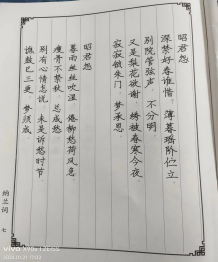 昭君怨
深禁好春谁惜。薄暮瑶阶伫立。
别院管弦声。不分明。
又是梨花欲谢。绣被春寒今夜。
寂寂锁朱门。梦承恩。
昭君怨
暮雨丝丝吹湿。倦柳愁荷风急。
瘦骨不禁秋。总成愁。
别有心情怎说。未是诉愁时节。
谯鼓已三更。梦须成。
纳兰词 七